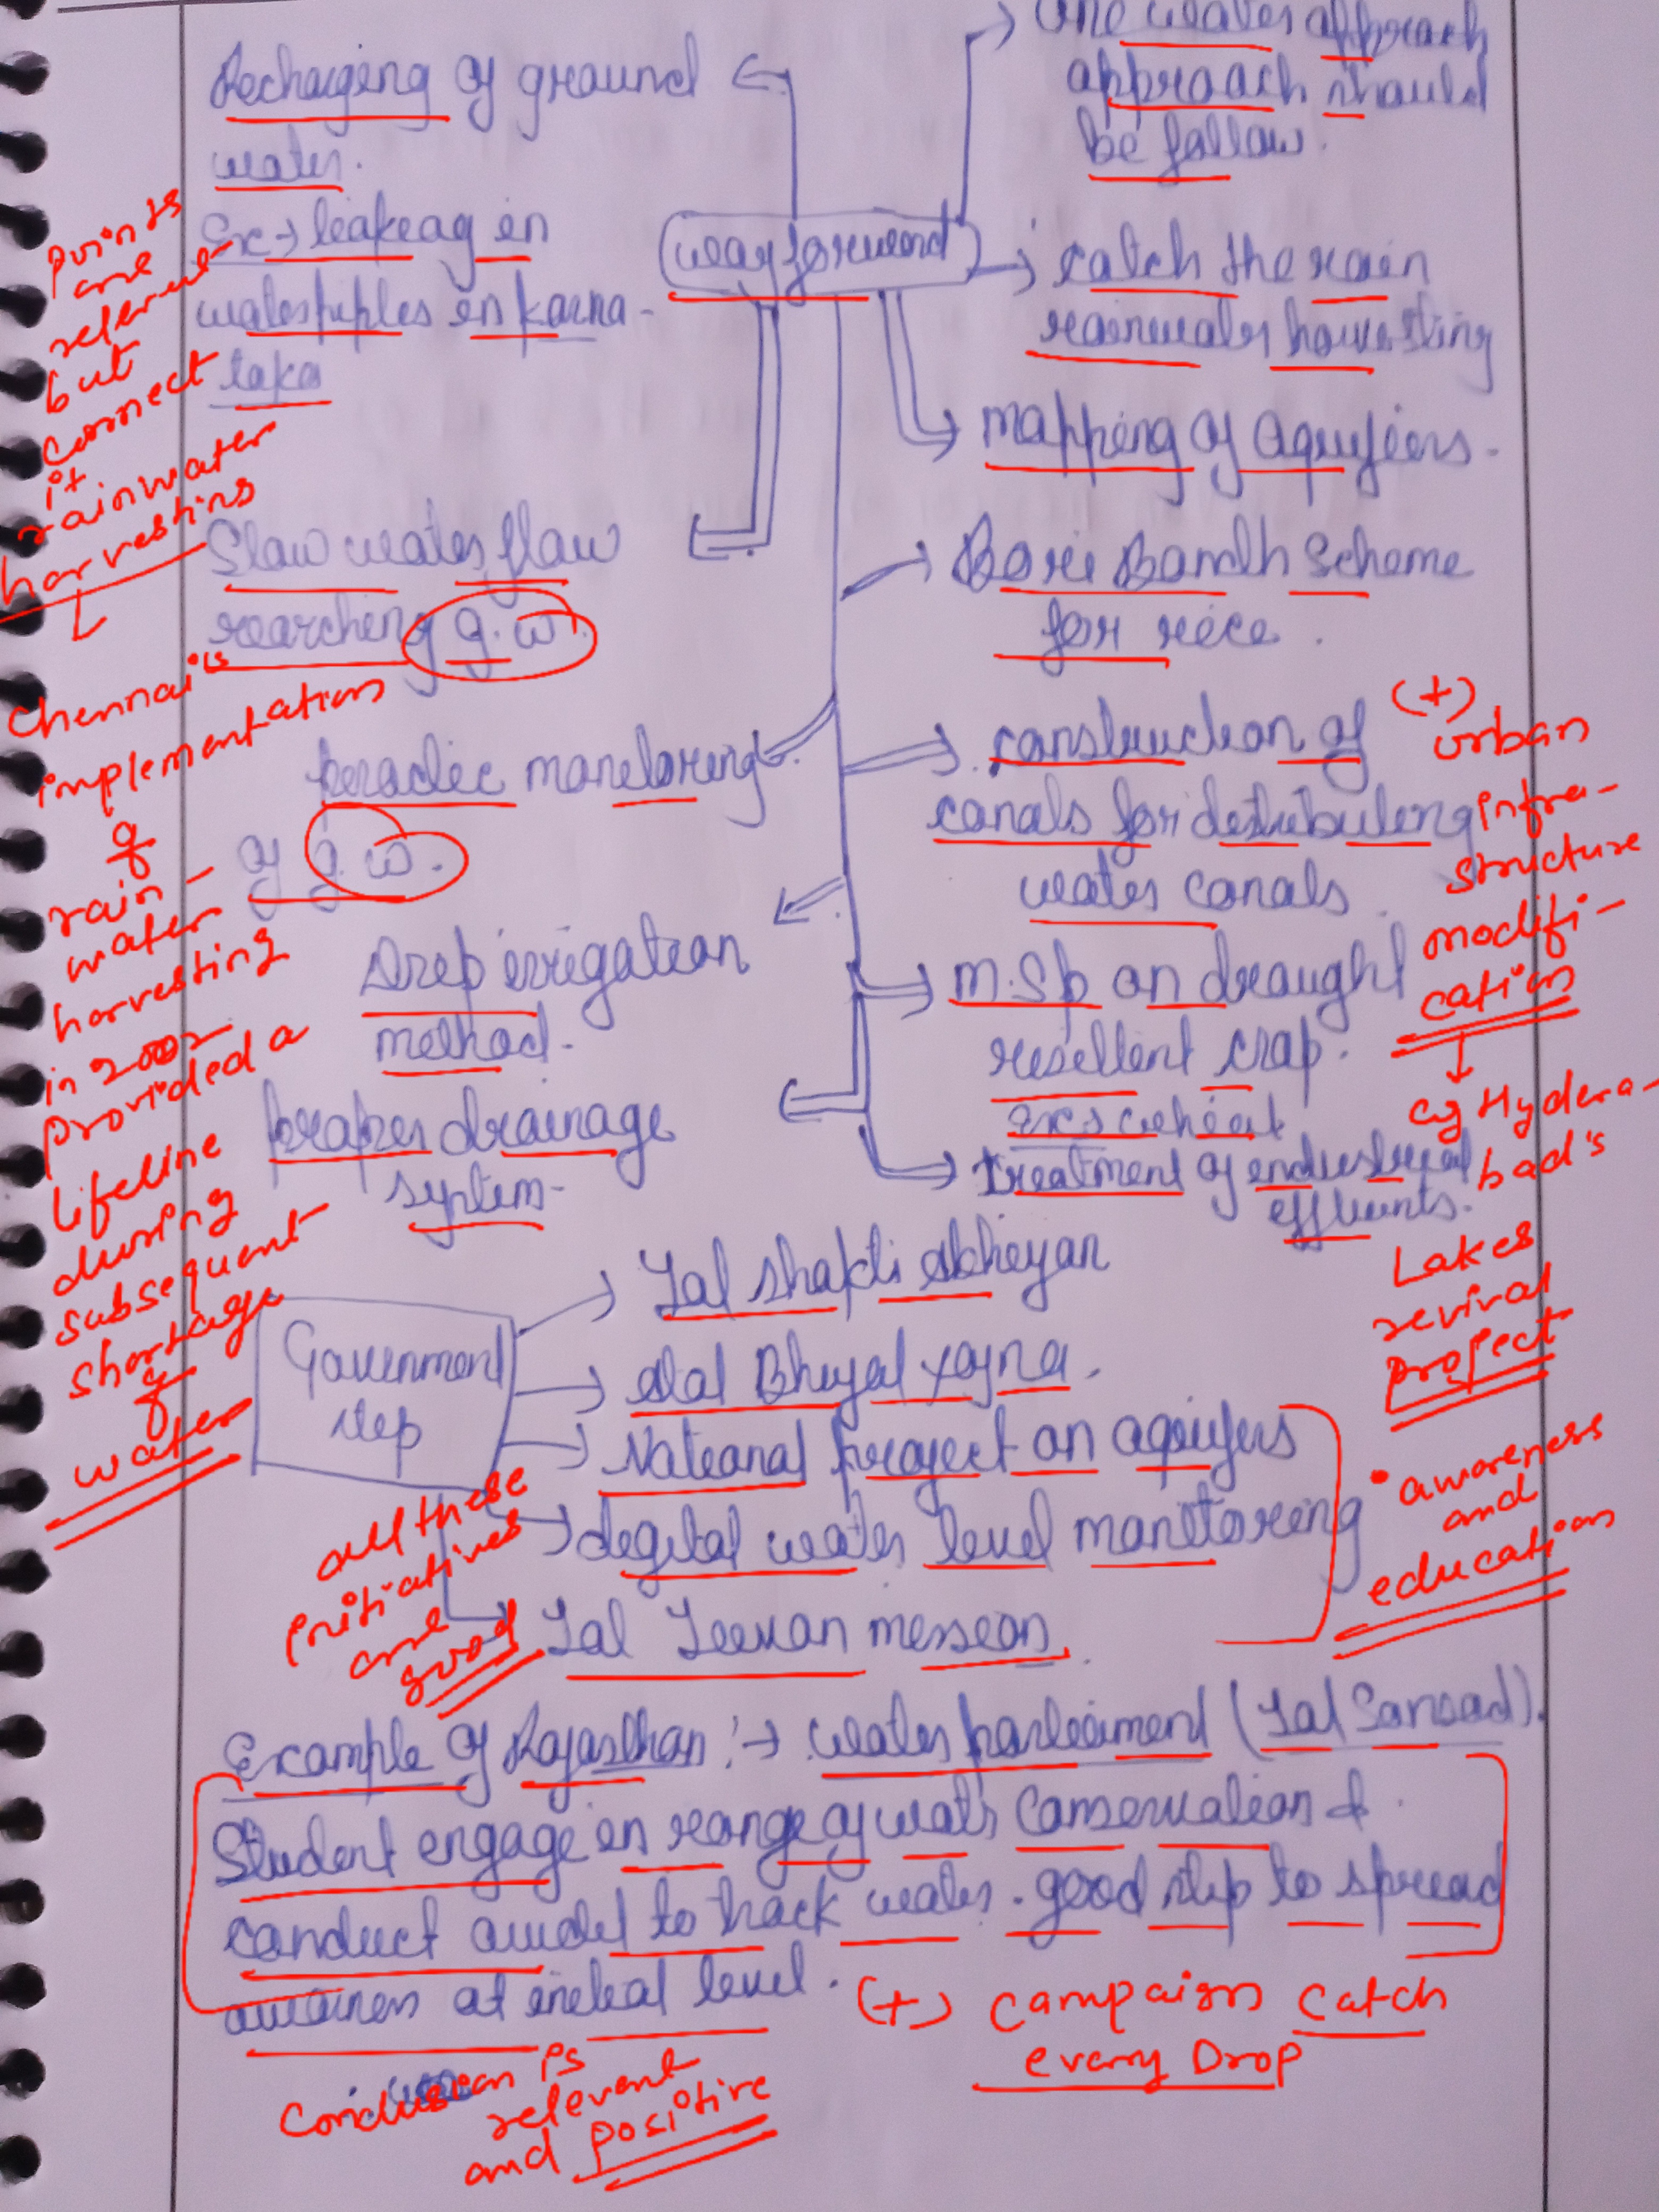 Recharging of ground
water.
Ex→ leakeag in
waterpiples in karna-
taka
Slaw water flaw
rearching g.w.
peraodic manitoring
of g.w.
Drip irrigation
method.
praper drainage
system-
way forward
one water approach
approach should
be follow.
catch the rain
rainwater harvesting
mapping of Aquifers.
Bori Bandh Scheme
for rice.
construction of
canals for distributing
water canals.
M.Sp on draught
resellent crap.
Ex→ wheat
treatment of industrial
effluents.
Government
step
Jal Shakti Abhiyan
Atal Bhujal Yojna.
National project on aquifers
digital water level monitoring
Jal Jeevan mession.
Example of Rajasthan :→ water parleiment (Jal Sansad).
Student engage in range of watr Conservation &
conduct audit to track water. good step to spread
awarness at initial level.
points
are
relevant
but
connect
it
rainwater
harvesting
Chennai's
implementation
of
rain-
water
harvesting
in 2002
provided a
lifeline
during
subsequent
shortage
of
water
(+)
urban
infra-
structure
modifi-
cation
eg Hydera-
bad's
Lakes
revival
project
• awareness
and
education
all these
initiatives
are
good
(+) Campaign Catch
every Drop
Conclusion is
relevent
and positive